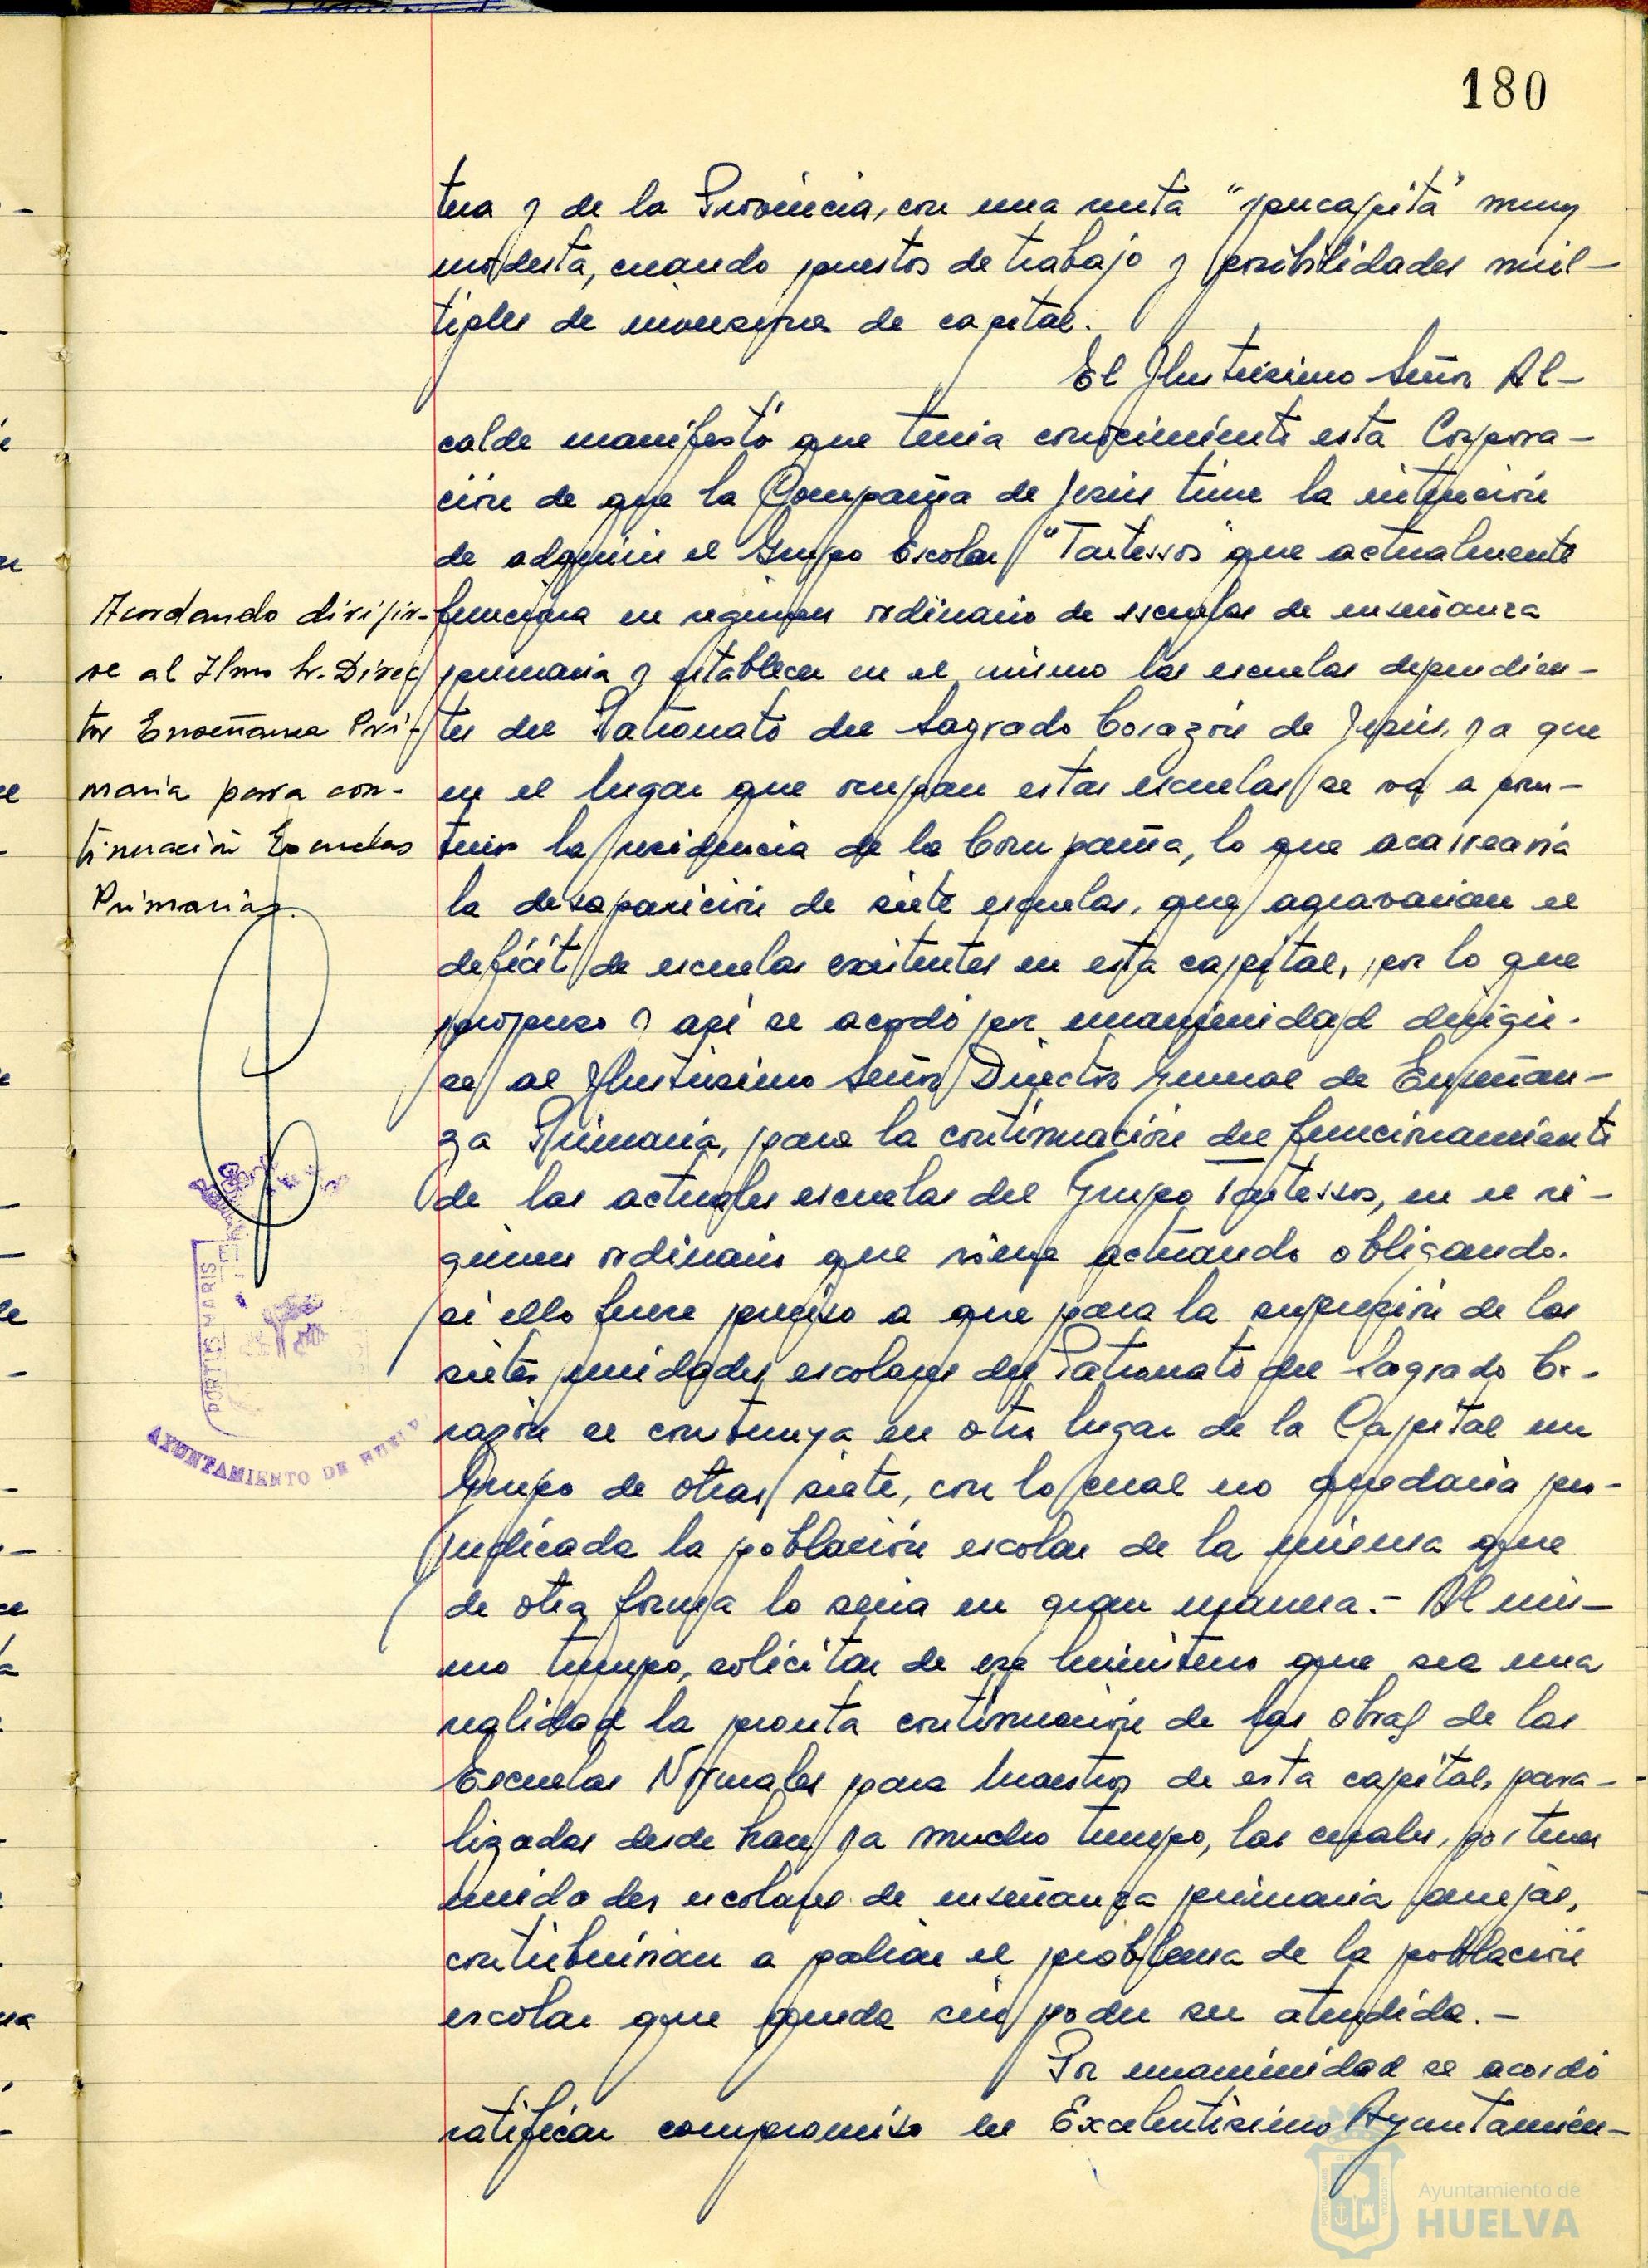 180
tura y de la Provincia, con una renta "percapita" muy
modesta, creando puestos de trabajo y posibilidades múl-
tiples de inversiones de capital.
El Ilustrísimo Señor Al-
calde manifestó que tenia conocimiento esta Corpora-
ción de que la Compañia de Jesús tiene la intención
de adquirir el Grupo Escolar "Tartessos" que actualmente
funciona en regimen ordinario de escuelas de enseñanza
primaria y establecer en el mismo las escuelas dependien-
tes del Patronato del Sagrado Corazón de Jesús, ya que
en el lugar que ocupan estas escuelas se va a cons-
truir la residencia de la Compañia, lo que acarrearia
la desaparición de siete escuelas, que agravarian el
deficit de escuelas existentes en esta capital, por lo que
propuso y así se acordó por unanimidad dirigir-
se al Ilustrísimo Señor Director General de Enseñan-
za Primaria, para la continuación del funcionamiento
de las actuales escuelas del Grupo Tartessos, en el ré-
gimen ordinario que viene actuando obligando.
si ello fuere preciso a que para la supresión de las
siete unidades escolares del Patronato del Sagrado Co-
razón se construya en otro lugar de la Capital un
Grupo de otras siete, con lo cual no quedaria per-
judicada la población escolar de la misma que
de otra forma lo seria en gran manera.- Al mis-
mo tiempo, solicitar de ese Ministerio que sea una
realidad la pronta continuación de las obras de las
Escuelas Normales para Maestros de esta capital, para-
lizadas desde hace ya mucho tiempo, las cuales, por tener
unidades escolares de enseñanza primaria anejas,
contribuirian a paliar el problema de la población
escolar que queda sin poder ser atendida.-
Por unanimidad se acordó
ratificar compromiso en Excelentísimo Ayuntamien-
Acordando dirigir-
se al Ilmo Sr. Direc
tor Enseñanza Pri-
maria para con-
tinuación Escuelas
Primarias.
PORTUS MARIS
AYUNTAMIENTO DE HUELVA
Ayuntamiento de
HUELVA